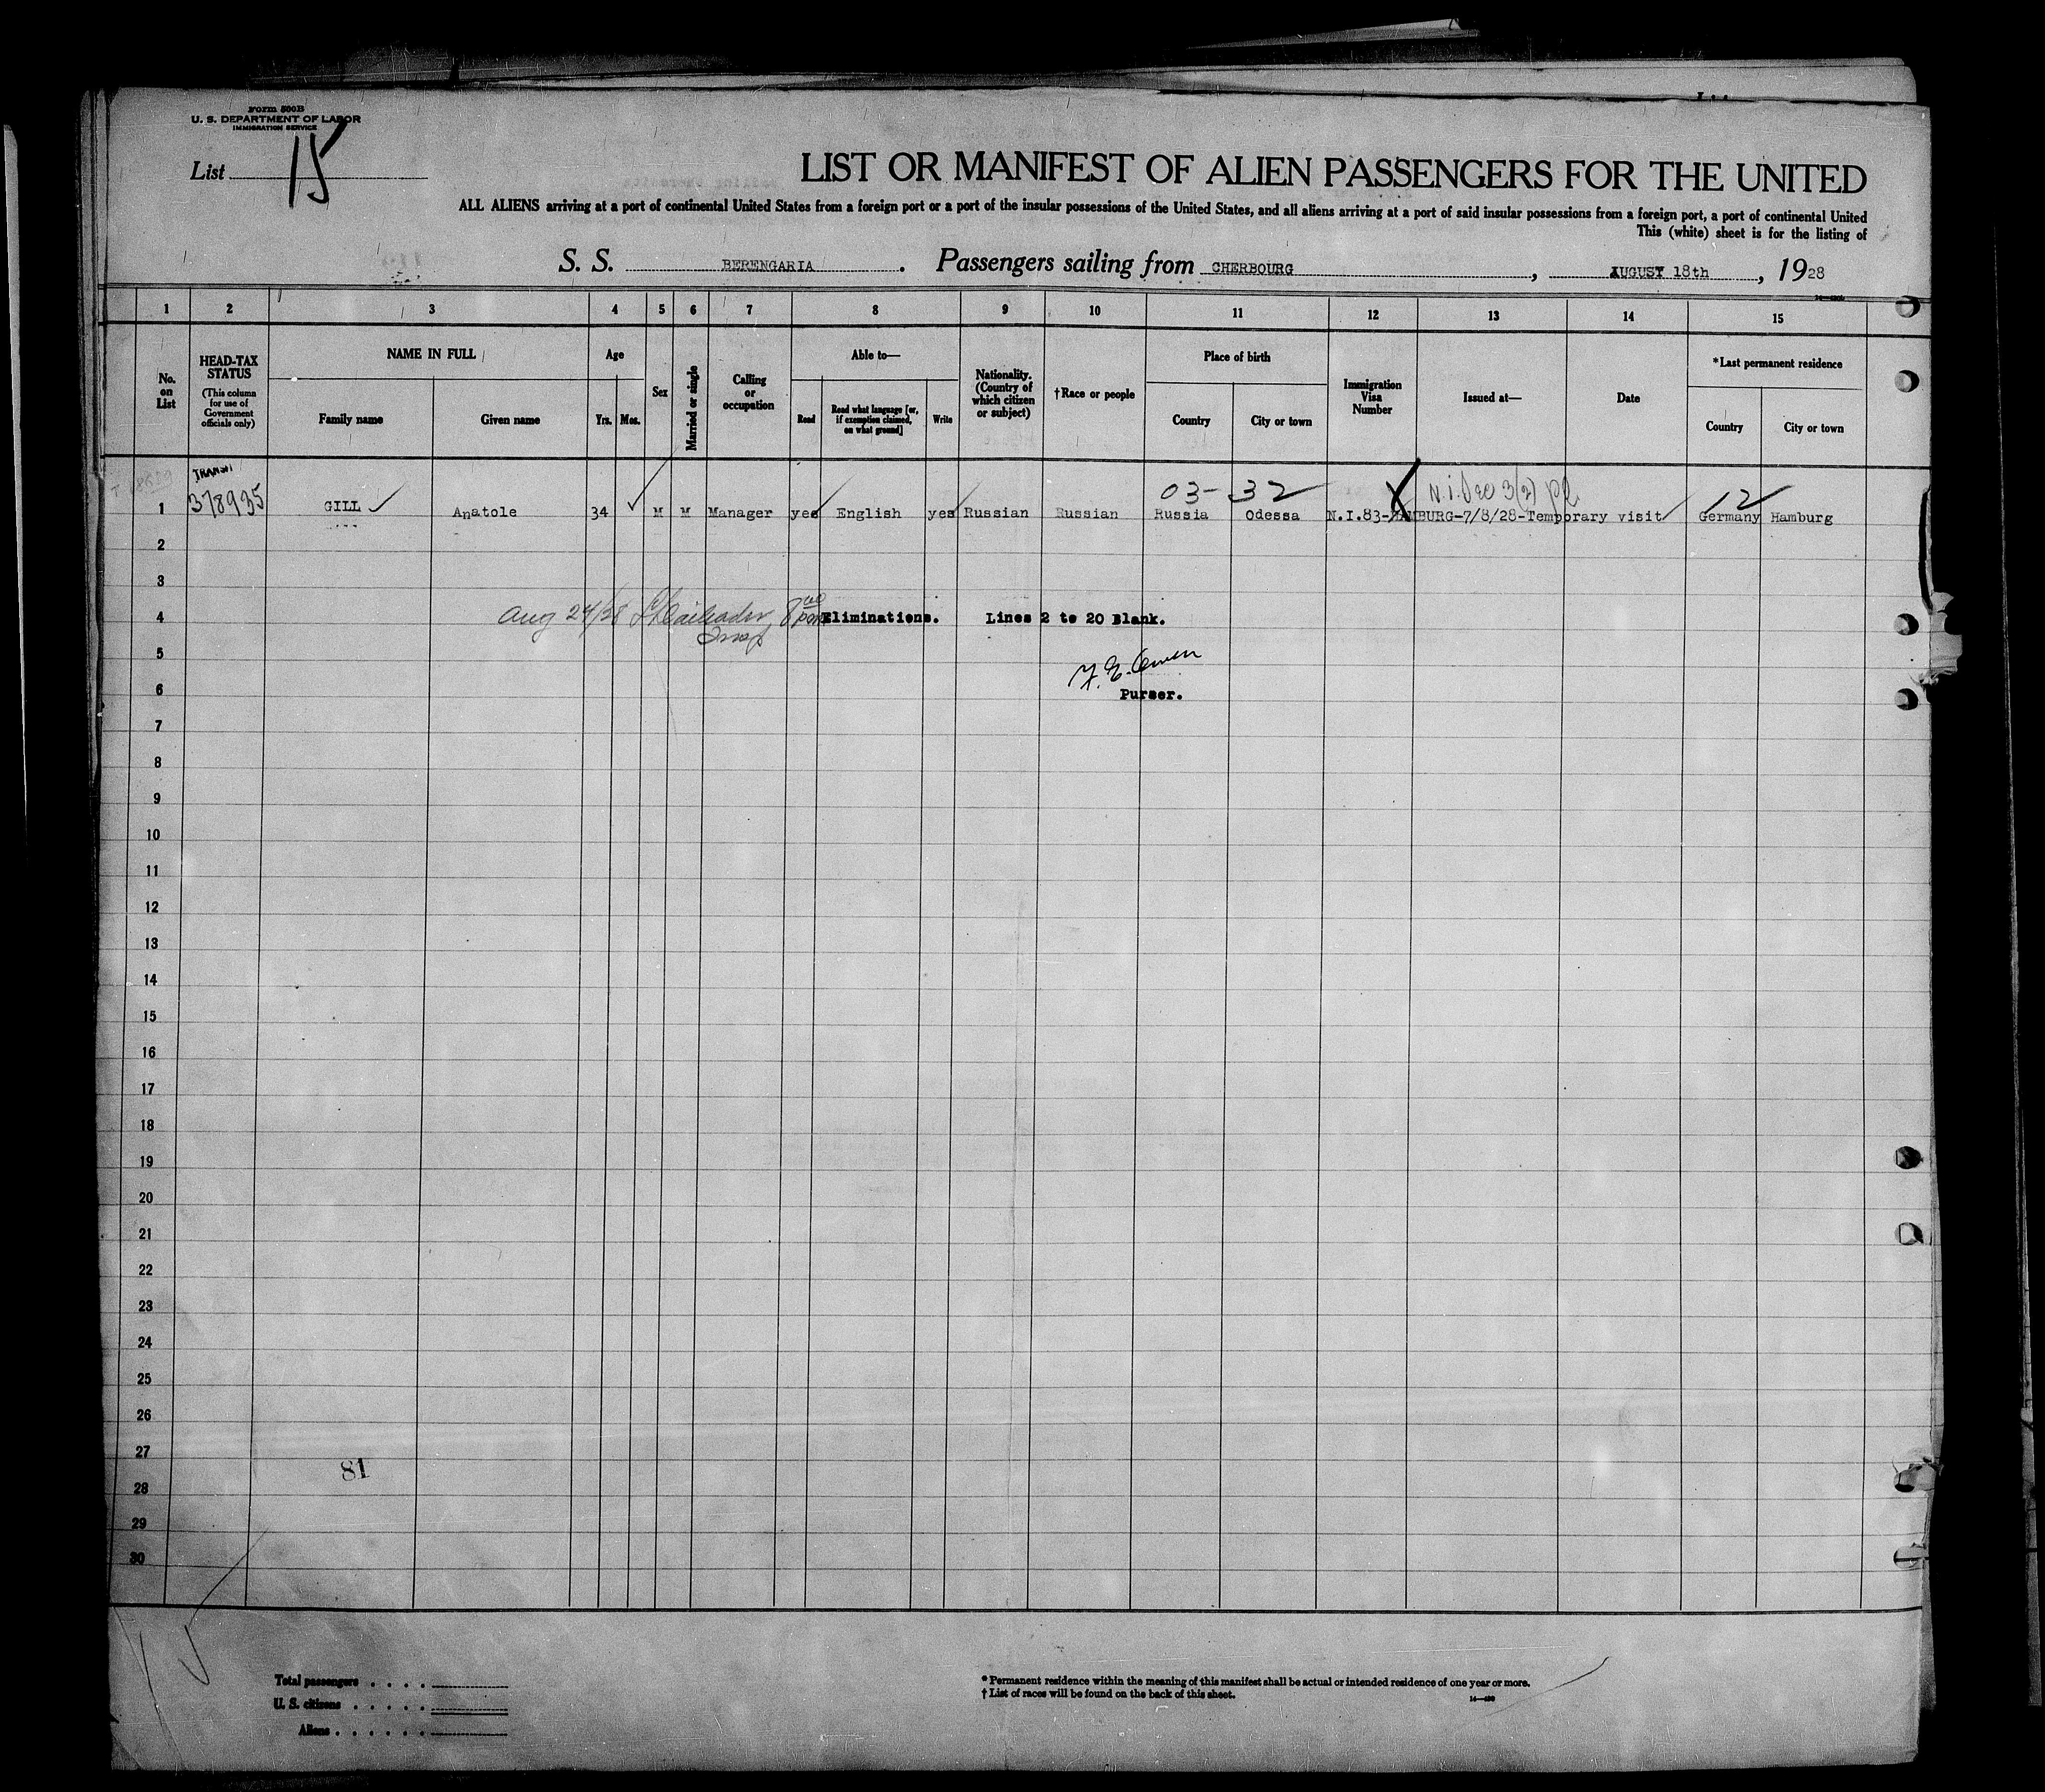 Form 500B
U. S. DEPARTMENT OF LABOR
IMMIGRATION SERVICE
List 15
LIST OR MANIFEST OF ALIEN PASSENGERS FOR THE UNITED
ALL ALIENS arriving at a port of continental United States from a foreign port or a port of the insular possessions of the United States, and all aliens arriving at a port of said insular possessions from a foreign port, a port of continental United
This (white) sheet is for the listing of
S. S. BERENGARIA. Passengers sailing from CHERBOURG, AUGUST 18th, 1928
1 2 3 4 5 6 7 8 9 10 11 12 13 14 15
No. on List
HEAD-TAX STATUS
(This column for use of Government officials only)
NAME IN FULL
Family name Given name
Age
Yrs. Mos.
Sex
Married or single
Calling or occupation
Able to—
Read Read what language [or, if exemption claimed, on what ground] Write
Nationality. (Country of which citizen or subject)
†Race or people
Place of birth
Country City or town
Immigration Visa Number
Issued at—
Date
*Last permanent residence
Country City or town
TRANSIT
378935
03- 32 X 12
1 GILL Anatole 34 M M Manager yes English yes Russian Russian Russia Odessa N.I.83-HAMBURG-7/8/28-Temporary visit Germany Hamburg
2
3
4 Aug 24/28 Eliminations. Lines 2 to 20 Blank.
5
6 Purser.
7
8
9
10
11
12
13
14
15
16
17
18
19
20
21
22
23
24
25
26
27
81
28
29
30
Total passengers
U. S. citizens
Aliens
* Permanent residence within the meaning of this manifest shall be actual or intended residence of one year or more.
† List of races will be found on the back of this sheet.